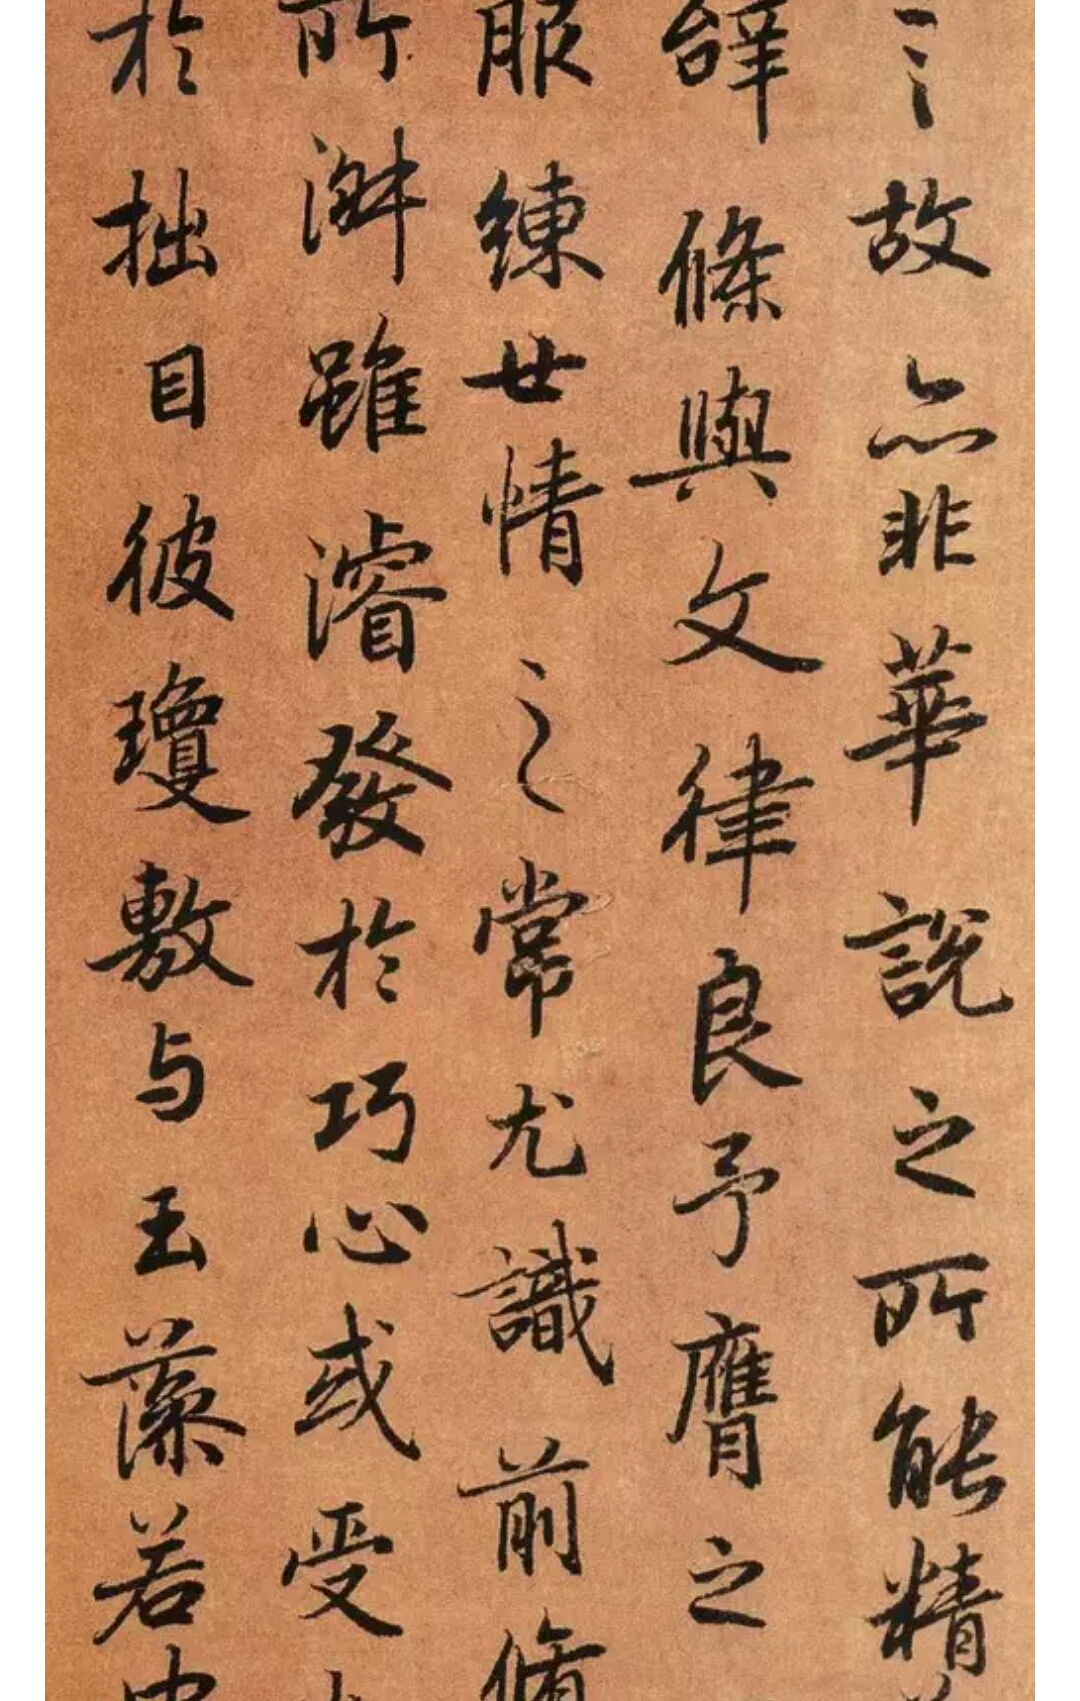 故亦非華說之所能精
辭條與文律良予膺之
服練世情之常尤識前脩
所淑雖濬發於巧心或受
於拙目彼瓊敷与玉藻若中